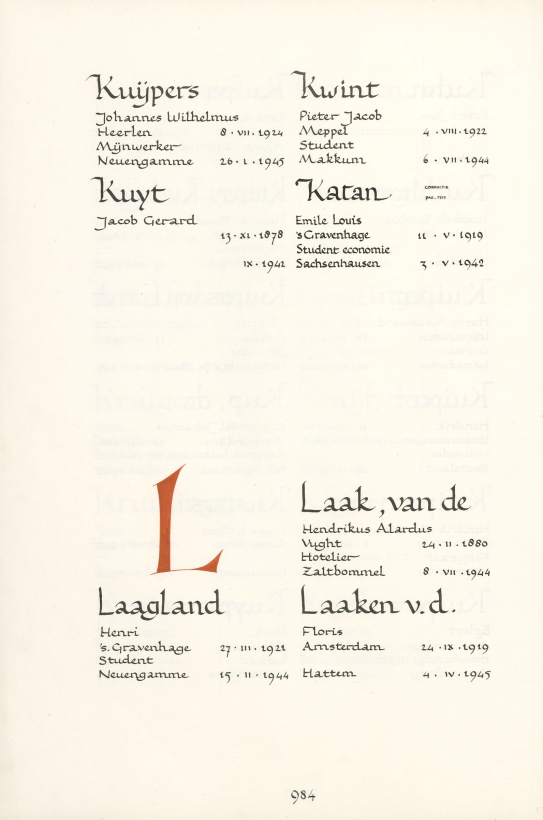 Kuijpers
Johannes Wilhelmus
Heerlen 8 · VII · 1924
Mijnwerker
Neuengamme 26 · I · 1945
Kuyt
Jacob Gerard
13 · XI · 1878
IX · 1942
Kwint
Pieter Jacob
Meppel 4 · VIII · 1922
Student
Makkum 6 · VII · 1944
Katan
Emile Louis
's Gravenhage 11 · V · 1919
Student economie
Sachsenhausen 3 · V · 1942
L
Laagland
Henri
's. Gravenhage 27 · III · 1921
Student
Neuengamme 15 · II · 1944
Laak, van de
Hendrikus Alardus
Vught 24 · II · 1880
Hotelier
Zaltbommel 8 · VII · 1944
Laaken v.d.
Floris
Amsterdam 24 · IX · 1919
Hattem 4 · IV · 1945
984